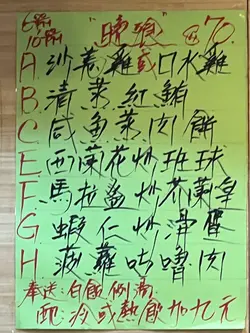 6時 "晚飯" $70
10時
A. 沙薑雞或口水雞
B. 清蒸紅鮋
C. 咸魚蒸肉餅
E. 西蘭花炒班球
F. 馬拉盞炒芥蘭
G. 蝦仁炒滑蛋
H. 菠蘿咕嚕肉
奉送:白飯 例湯
配:冷或熱飲加九元